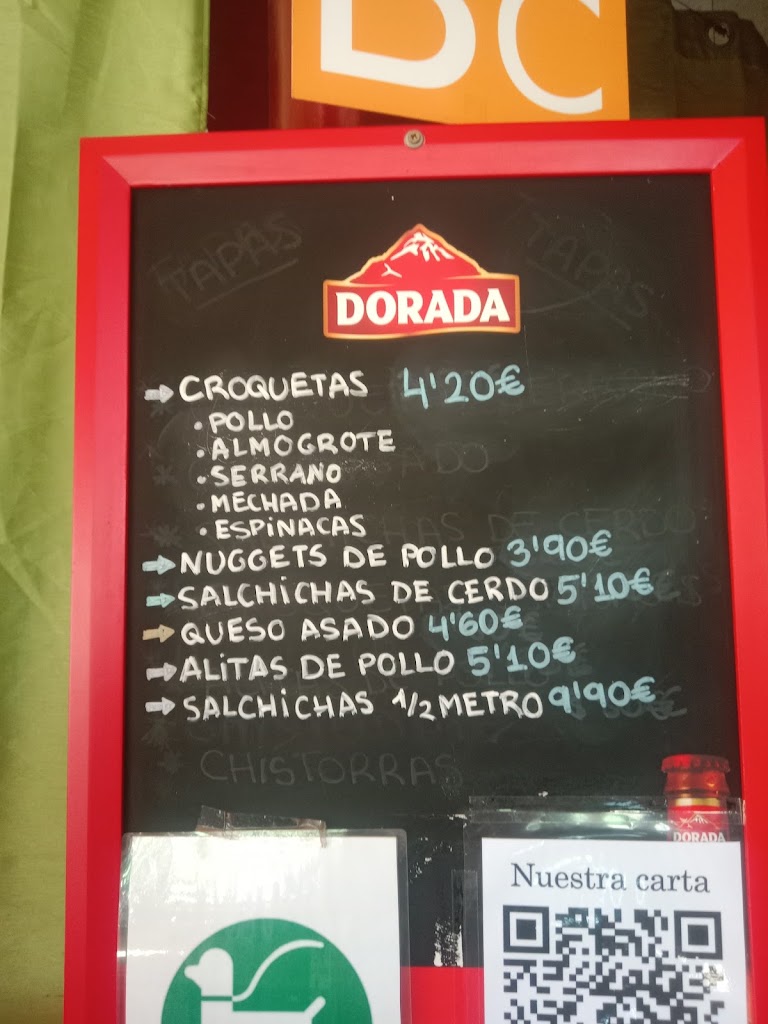 BC
TAPAS
TAPAS
DORADA
→ CROQUETAS 4'20€
• POLLO
• ALMOGROTE
• SERRANO
• MECHADA
• ESPINACAS
→ NUGGETS DE POLLO 3'90€
→ SALCHICHAS DE CERDO 5'10€
→ QUESO ASADO 4'60€
→ ALITAS DE POLLO 5'10€
→ SALCHICHAS 1/2 METRO 9'90€
* CHISTORRAS
DORADA
Nuestra carta